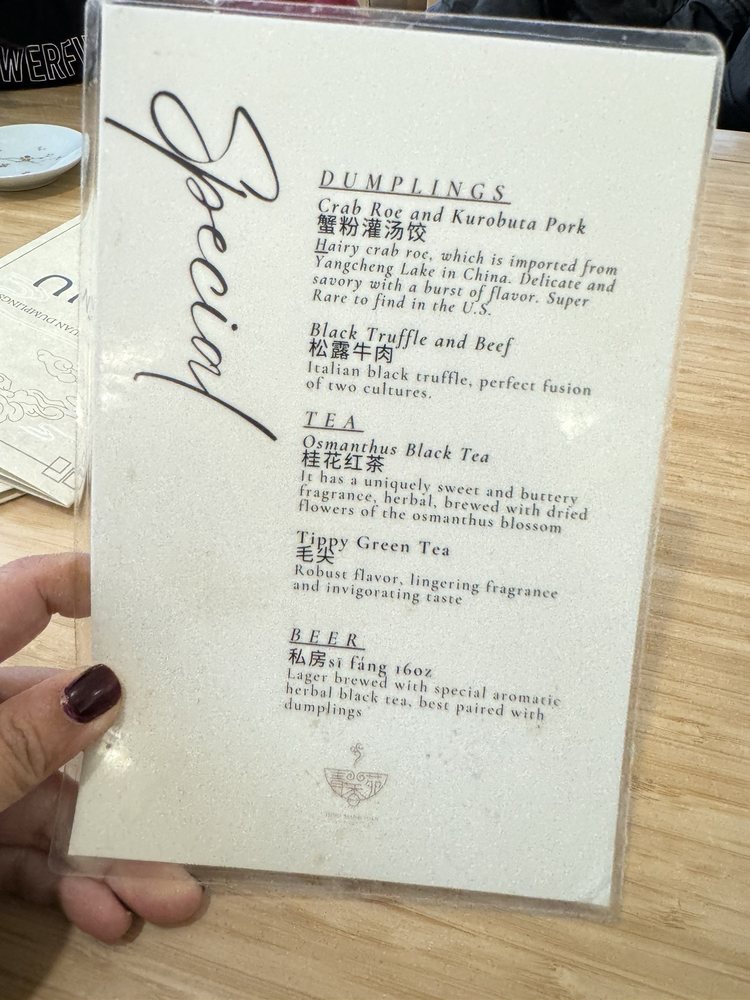 WERFU
Special
DUMPLINGS
Crab Roe and Kurobuta Pork
蟹粉灌汤饺
Hairy crab roe, which is imported from
Yangcheng Lake in China. Delicate and
savory with a burst of flavor. Super
Rare to find in the U.S.
Black Truffle and Beef
松露牛肉
Italian black truffle, perfect fusion
of two cultures.
TEA
Osmanthus Black Tea
桂花红茶
It has a uniquely sweet and buttery
fragrance, herbal, brewed with dried
flowers of the osmanthus blossom
Tippy Green Tea
毛尖
Robust flavor, lingering fragrance
and invigorating taste
BEER
私房sī fáng 16oz
Lager brewed with special aromatic
herbal black tea, best paired with
dumplings
UAN DUMPLINGS